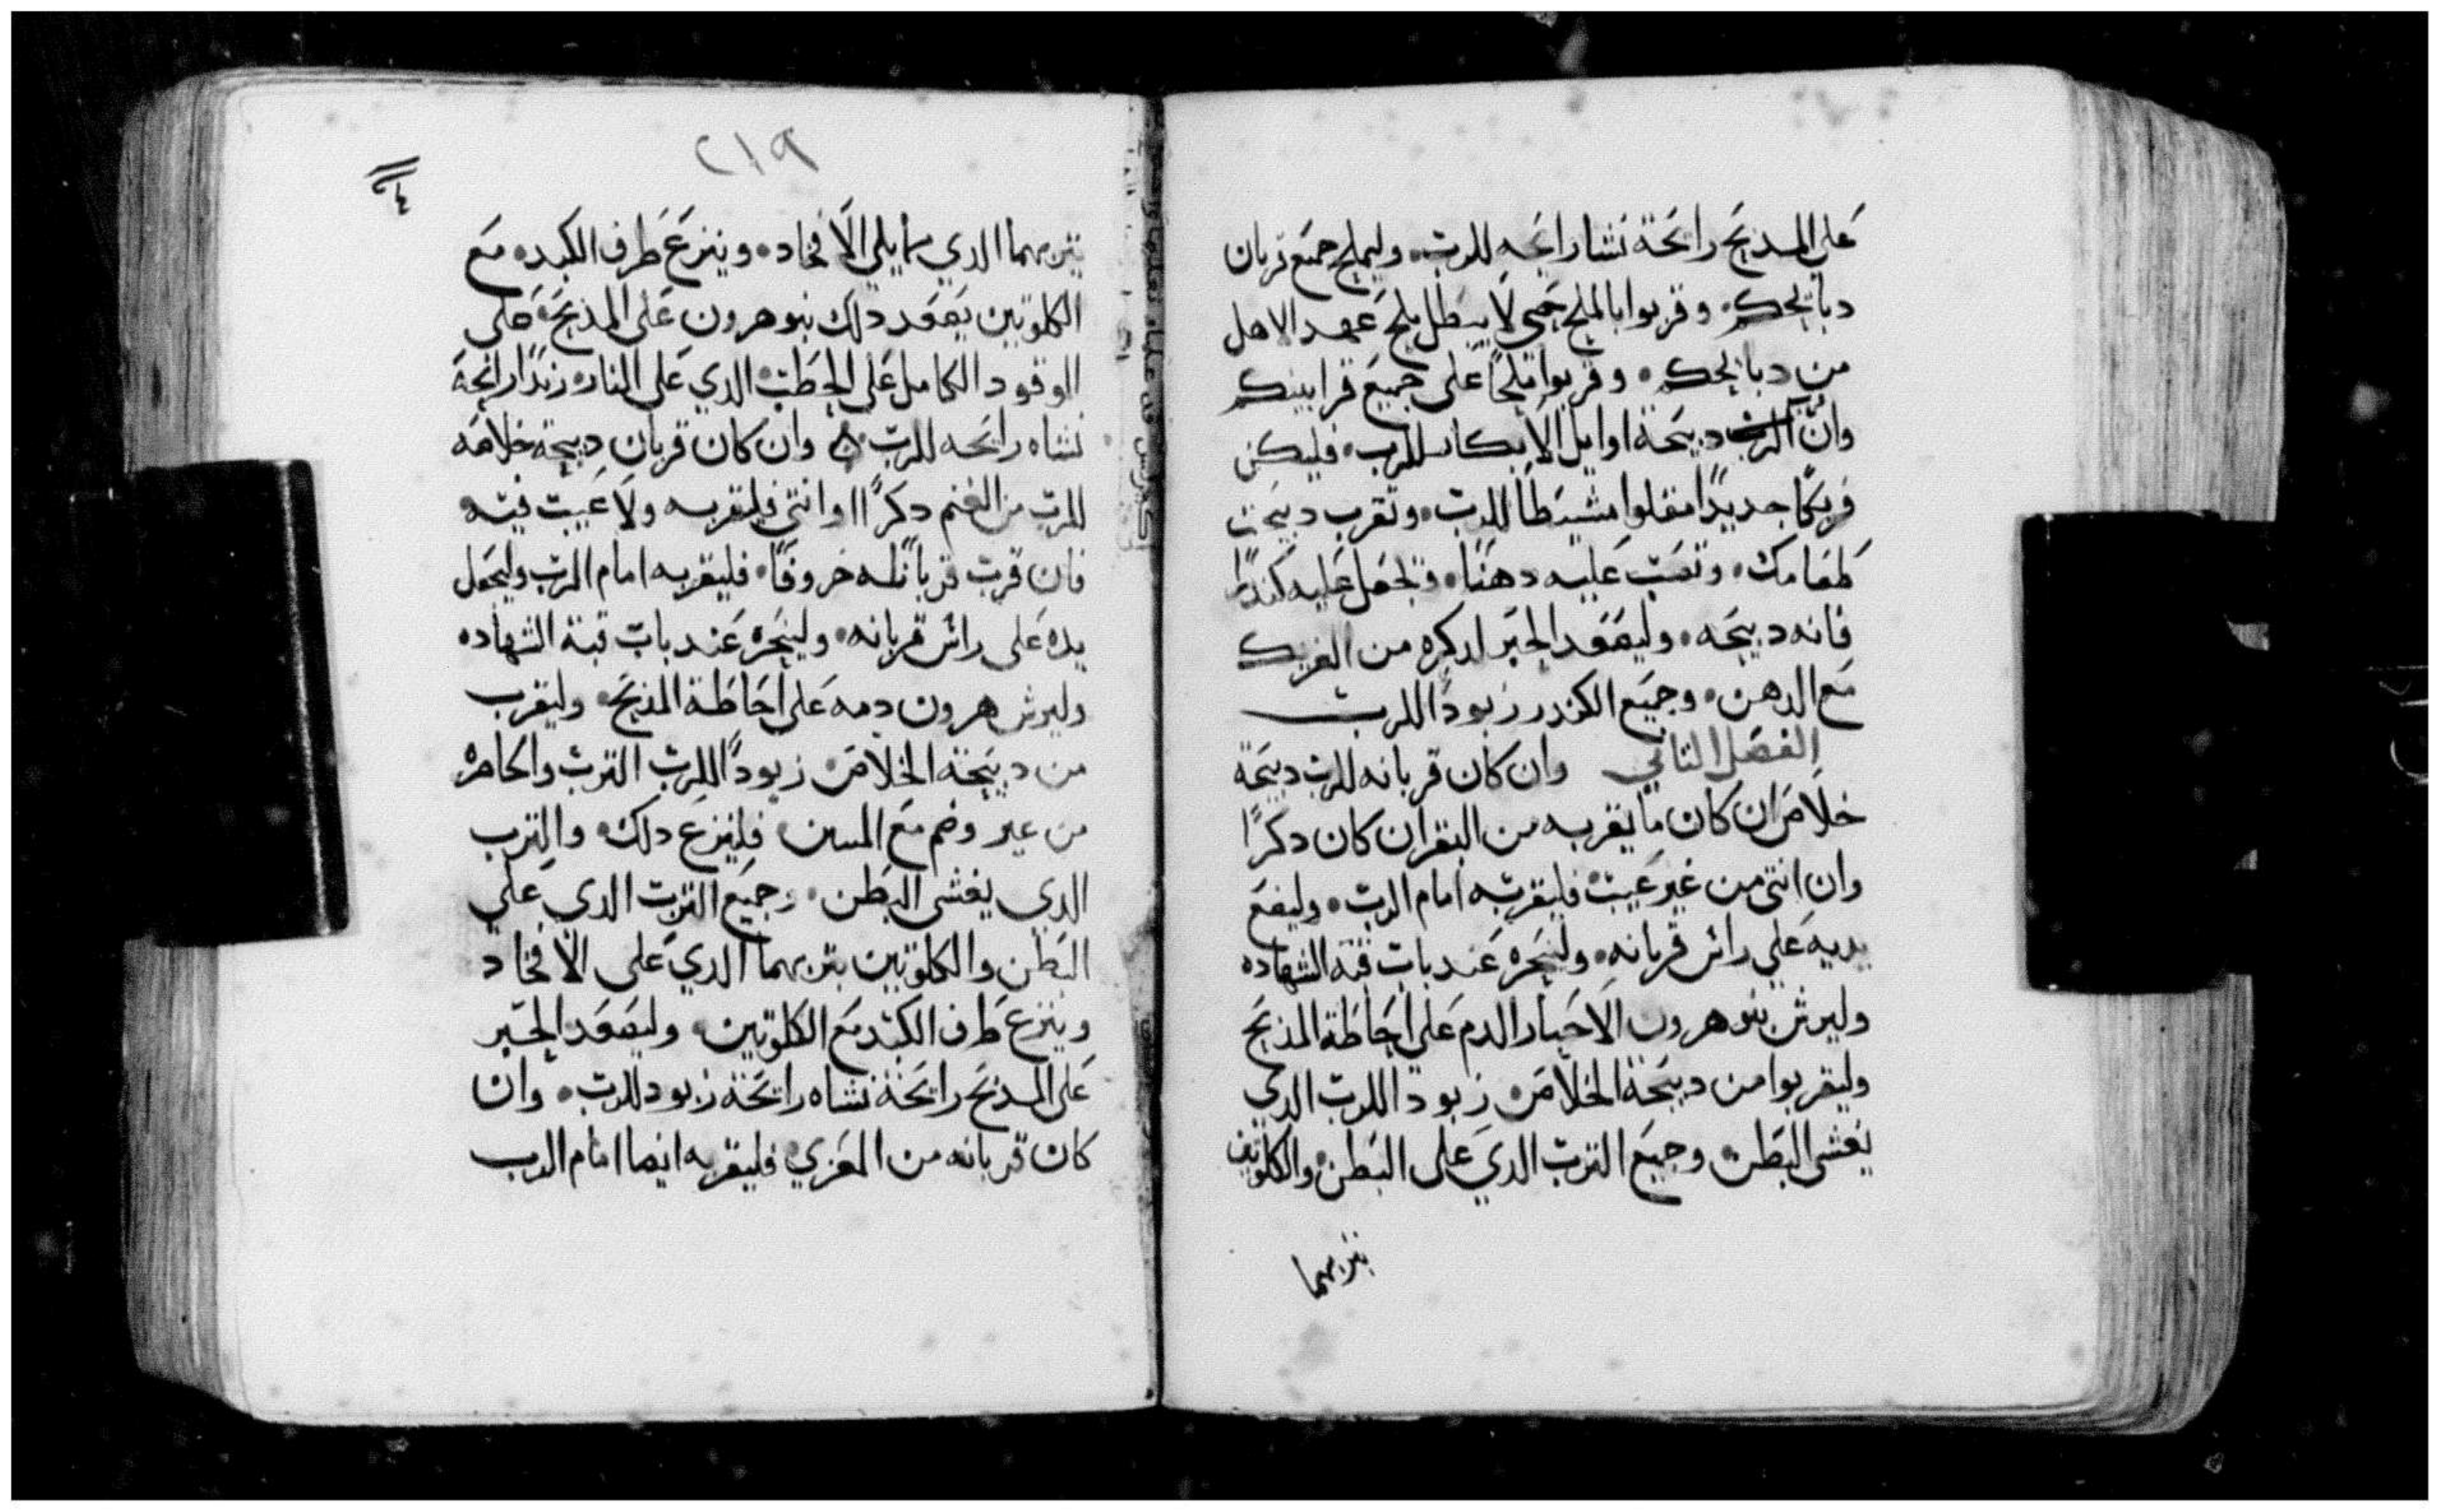 على المذبح رائحة نشا رائحه للرب. وليملح جميع قربان
دبائحكم. وقربوا بالملح حتى لا يبطل ملح عهد الاهل
من دبائحكم. وقربوا ملحًا على جميع قرابينكم
وان قرب دبيحة اوايل الابكار للرب. فليكن
فريكًا جديدًا مقلوا مشيطا للرب. وتقرب دبيحت
طعامك. وتصب عليه دهنًا. وتجعل عليه كندرًا
فانه دبيحه. وليصعد الحبر لدكره من الفريك
مع الدهن. وجميع الكندر زبودًا للرب
الفصل الثاني وان كان قربانه للرب دبيحة
خلاص ان كان ما يقربه من البقر ان كان دكرًا
وان انثى من غير عيب فليقربه امام الرب. وليضع
يديه على راس قربانه. ولينحره عند باب قبة الشهاده
وليرش بنو هرون الاحبار الدم على احاطة المذبح
وليقربوا من دبيحة الخلاص زبودا للرب الدي
يغشى البطن. وجميع الترب الدي على البطن والكلوتين
بتربهما
٢١٩
بتربهما الدي مما يلي الافخاد. وينزع طرف الكبد. مع
الكلوتين يصعد دلك بنو هرون على المذبح. على
الوقود الكامل على الحطب الدي على النار. زبدًا رائحة
نشاه رائحه للرب. وان كان قربان دبيحة خلاصه
للرب من الغنم دكرًا او انثى فليقربه ولا عيب فيه
فان قرب قربانه خروفًا. فليقربه امام الرب وليجعل
يده على راس قربانه. ولينحره عند باب قبة الشهاده
وليرش هرون دمه على احاطة المذبح. وليقرب
من دبيحة الخلاص. زبودًا للرب الترب والخاصره
من غير وضم مع المتن. فلينزع دلك. والترب
الدي يغشى البطن. وجميع الترب الدي على
البطن والكلوتين بتربهما الدي على الافخاد
وينزع طرف الكبد مع الكلوتين. وليصعد الحبر
على المذبح رائحة نشاه رائحة زبود للرب. وان
كان قربانه من المعزي فليقربه ايضا امام الرب